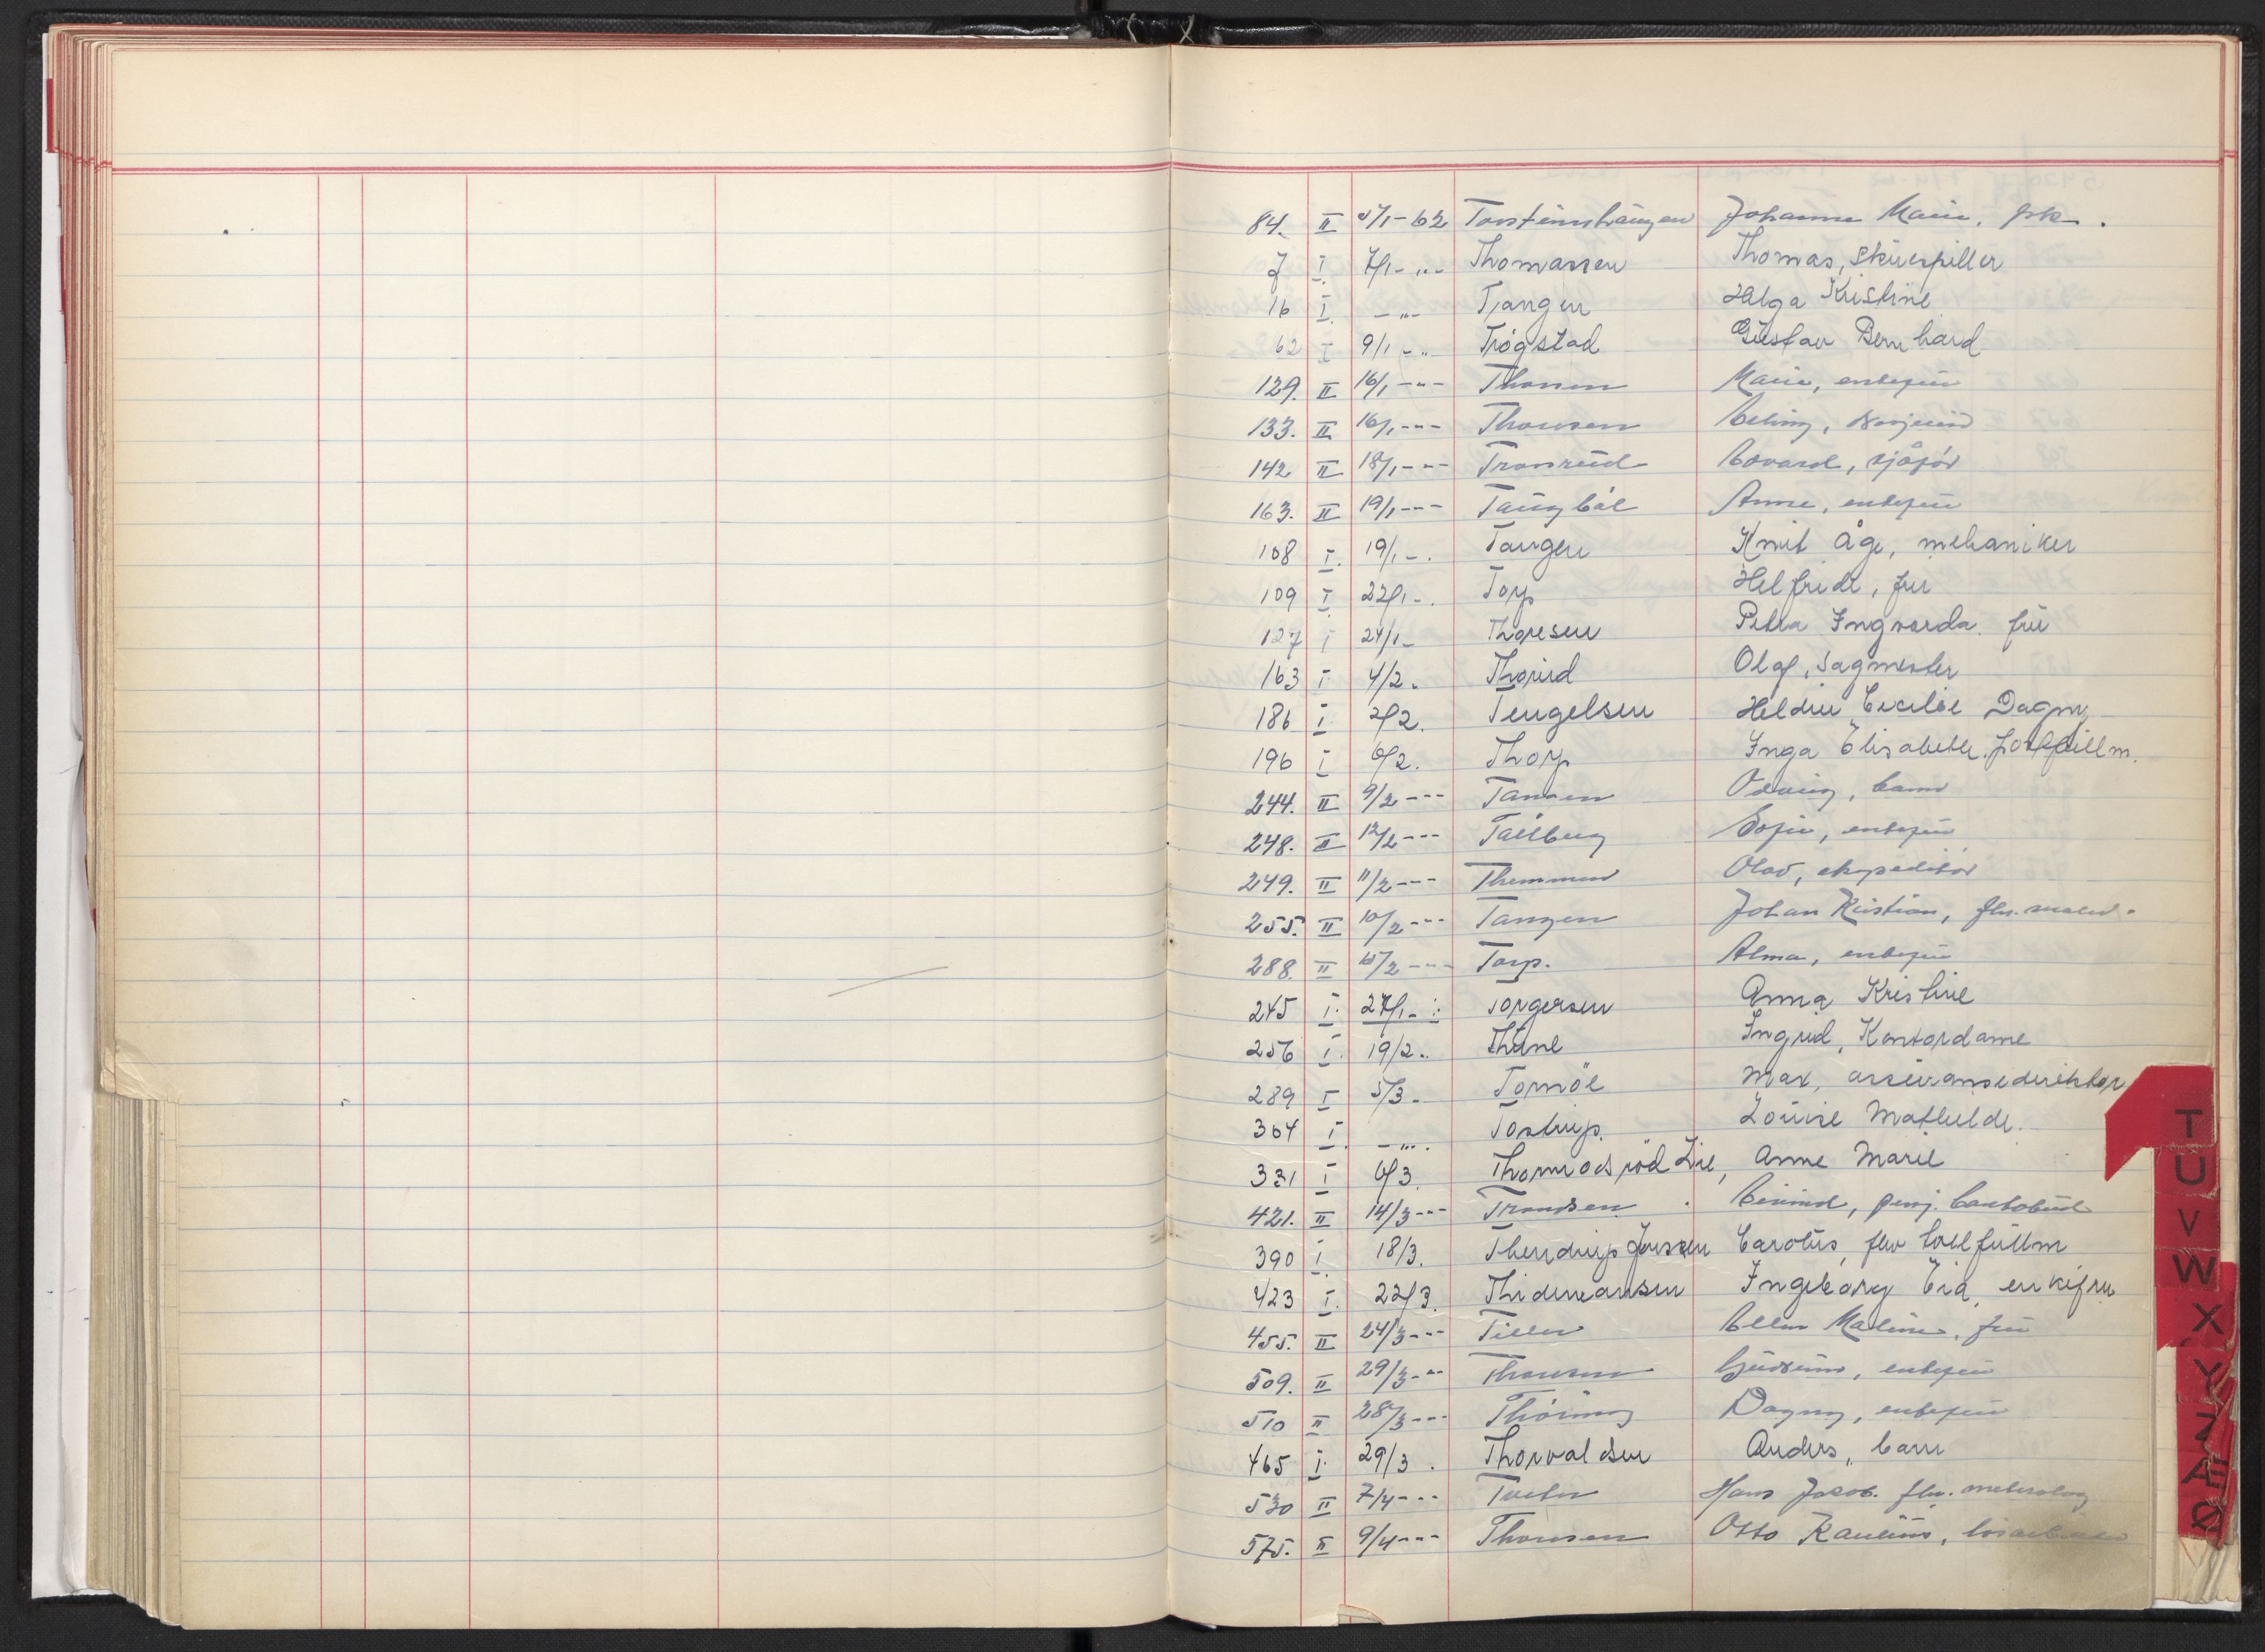 84. II 5/1-62 Torsteinshaugen Johanne Marie, frk.
7 I. 7/1- „- Thomassen Thomas, Skuespiller
16 I. -„- Tangen Helga Kristine
62 I 9/1 - „ Trøgstad Gustav Bernhard
129. II 16/1 -„- Thorsen Marie, enkefru
133. II 16/1 -„- Thorsen
142 II 18/1 -„- Tronrud Edvard, sjåfør
163. II 19/1 -„- Taugbøl Anne, enkefru
108 I. 19/1 -. Tangen Knut Åge, mekaniker
109 I. 22/1 -. Torp Helfride, fru
127 I 24/1 - Thoresen Petra Ingvarda. fru
163 I 4/2. Thorud Olaf, Sagmester
186 I. 2/2. Tengelsen Cecilie Dagny
196 I 6/2. Thorp Inga Elisabeth.
244. II 9/2 -„- Tansen Odving, barn
248. II 12/2 -„- Tallberg Sofie, enkefru
249. II 11/2 -„- Themmen Olav, ekspeditør
255. II 10/2 -„- Tangen Johan Kristian, fhv.
288. II 15/2 -„- Torp. Alma, enkefru
245 I. 27/1 - Torgersen Anna Kristine
256 I. 19/2. Thune Ingrid, Kontordame
289 I 5/3 - Tornøe Max, assuransedirektør
304 I. -„-. Tostrup. Louise Mathilde.
331 I 6/3. Thormodsrød Lie, Anne Marie
421. II 14/3 -„- Trondsen Eivind, pensj.
390 I. 18/3. Thendrup Jenssen Carolus, fhv tollfullm
423 I. 22/3. Thidemansen Ingeborg Eia, enkefru
455. II 24/3 -„- Tiller Ellen Malene, fru
509. II 29/3 -„- Thorsen Gudrun, enkefru
510 II 28/3 -„- Thöring Dagny, enkefru
465 I. 29/3. Thorvaldsen Anders, barn
530 II 7/4 -„- Hans Jacob. fhv.
575. II 9/4 -„- Thorsen Otto
T
U
V
W
X
Y
Z
Æ
Ø